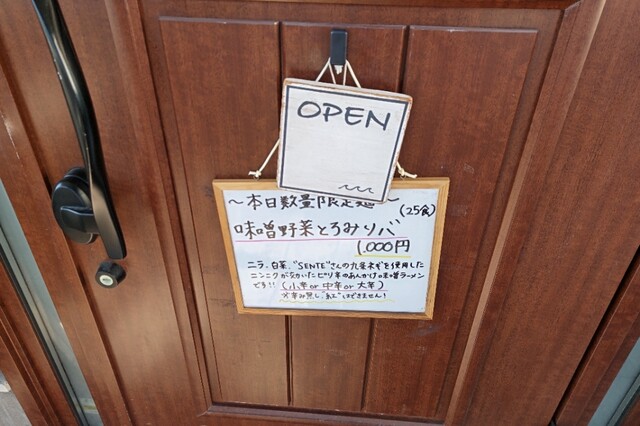 OPEN
～本日数量限定麺～
(25食)
味噌野菜とろみソバ
1,000円
ニラ、白菜、"SENTE"さんの九条ネギを使用した
ニンニクが効いたピリ辛のあんかけ味噌ラーメン
です!! (小辛 or 中辛 or 大辛)
※辛み無し、はできません!